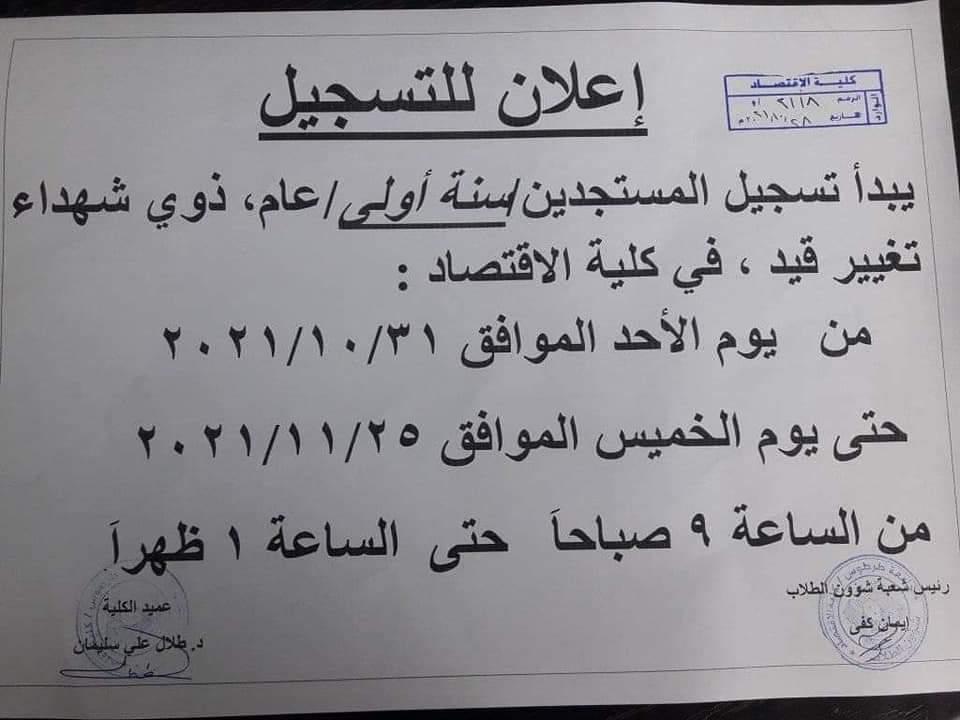 إعلان للتسجيل
كلية الإقتصاد
الوارد
الرقم ٢١١٨ / و
تاريخ ٢٠٢١/١٠/٢٨ م
يبدأ تسجيل المستجدين/سنة أولى/عام، ذوي شهداء
تغيير قيد ، في كلية الاقتصاد :
من يوم الأحد الموافق ٢٠٢١/١٠/٣١
حتى يوم الخميس الموافق ٢٠٢١/١١/٢٥
من الساعة ٩ صباحاَ حتى الساعة ١ ظهراَ
رئيس شعبة شؤون الطلاب
إيمان كفى
عميد الكلية
د. طلال علي سليمان